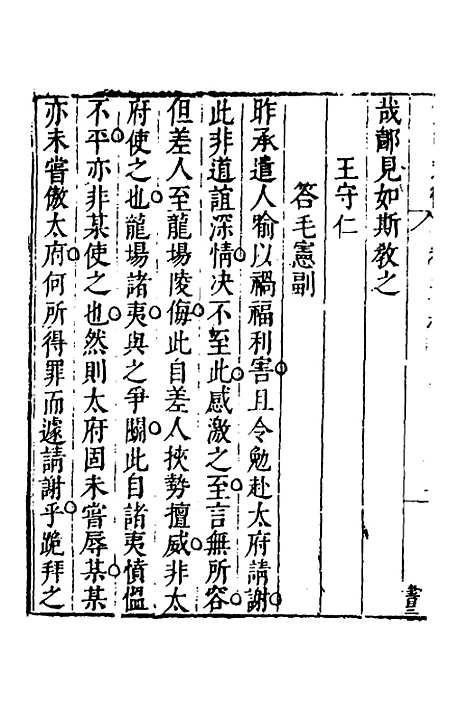 哉鄙見如斯敎之
王守仁
答毛憲副
昨承遣人喻以禍福利害且令勉赴太府請謝
此非道誼深情决不至此感激之至言無所容
但差人至龍場陵侮此自差人挾勢擅威非太
府使之也龍場諸夷與之爭鬭此自諸夷憤慍
不平亦非某使之也然則太府固未嘗辱某某
亦未嘗傲太府何所得罪而遽請謝乎跪拜之